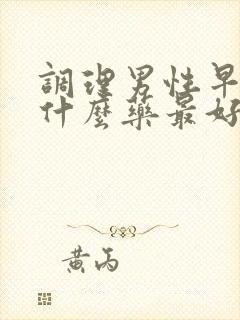 調理男性早
什麼藥最好
黃丙